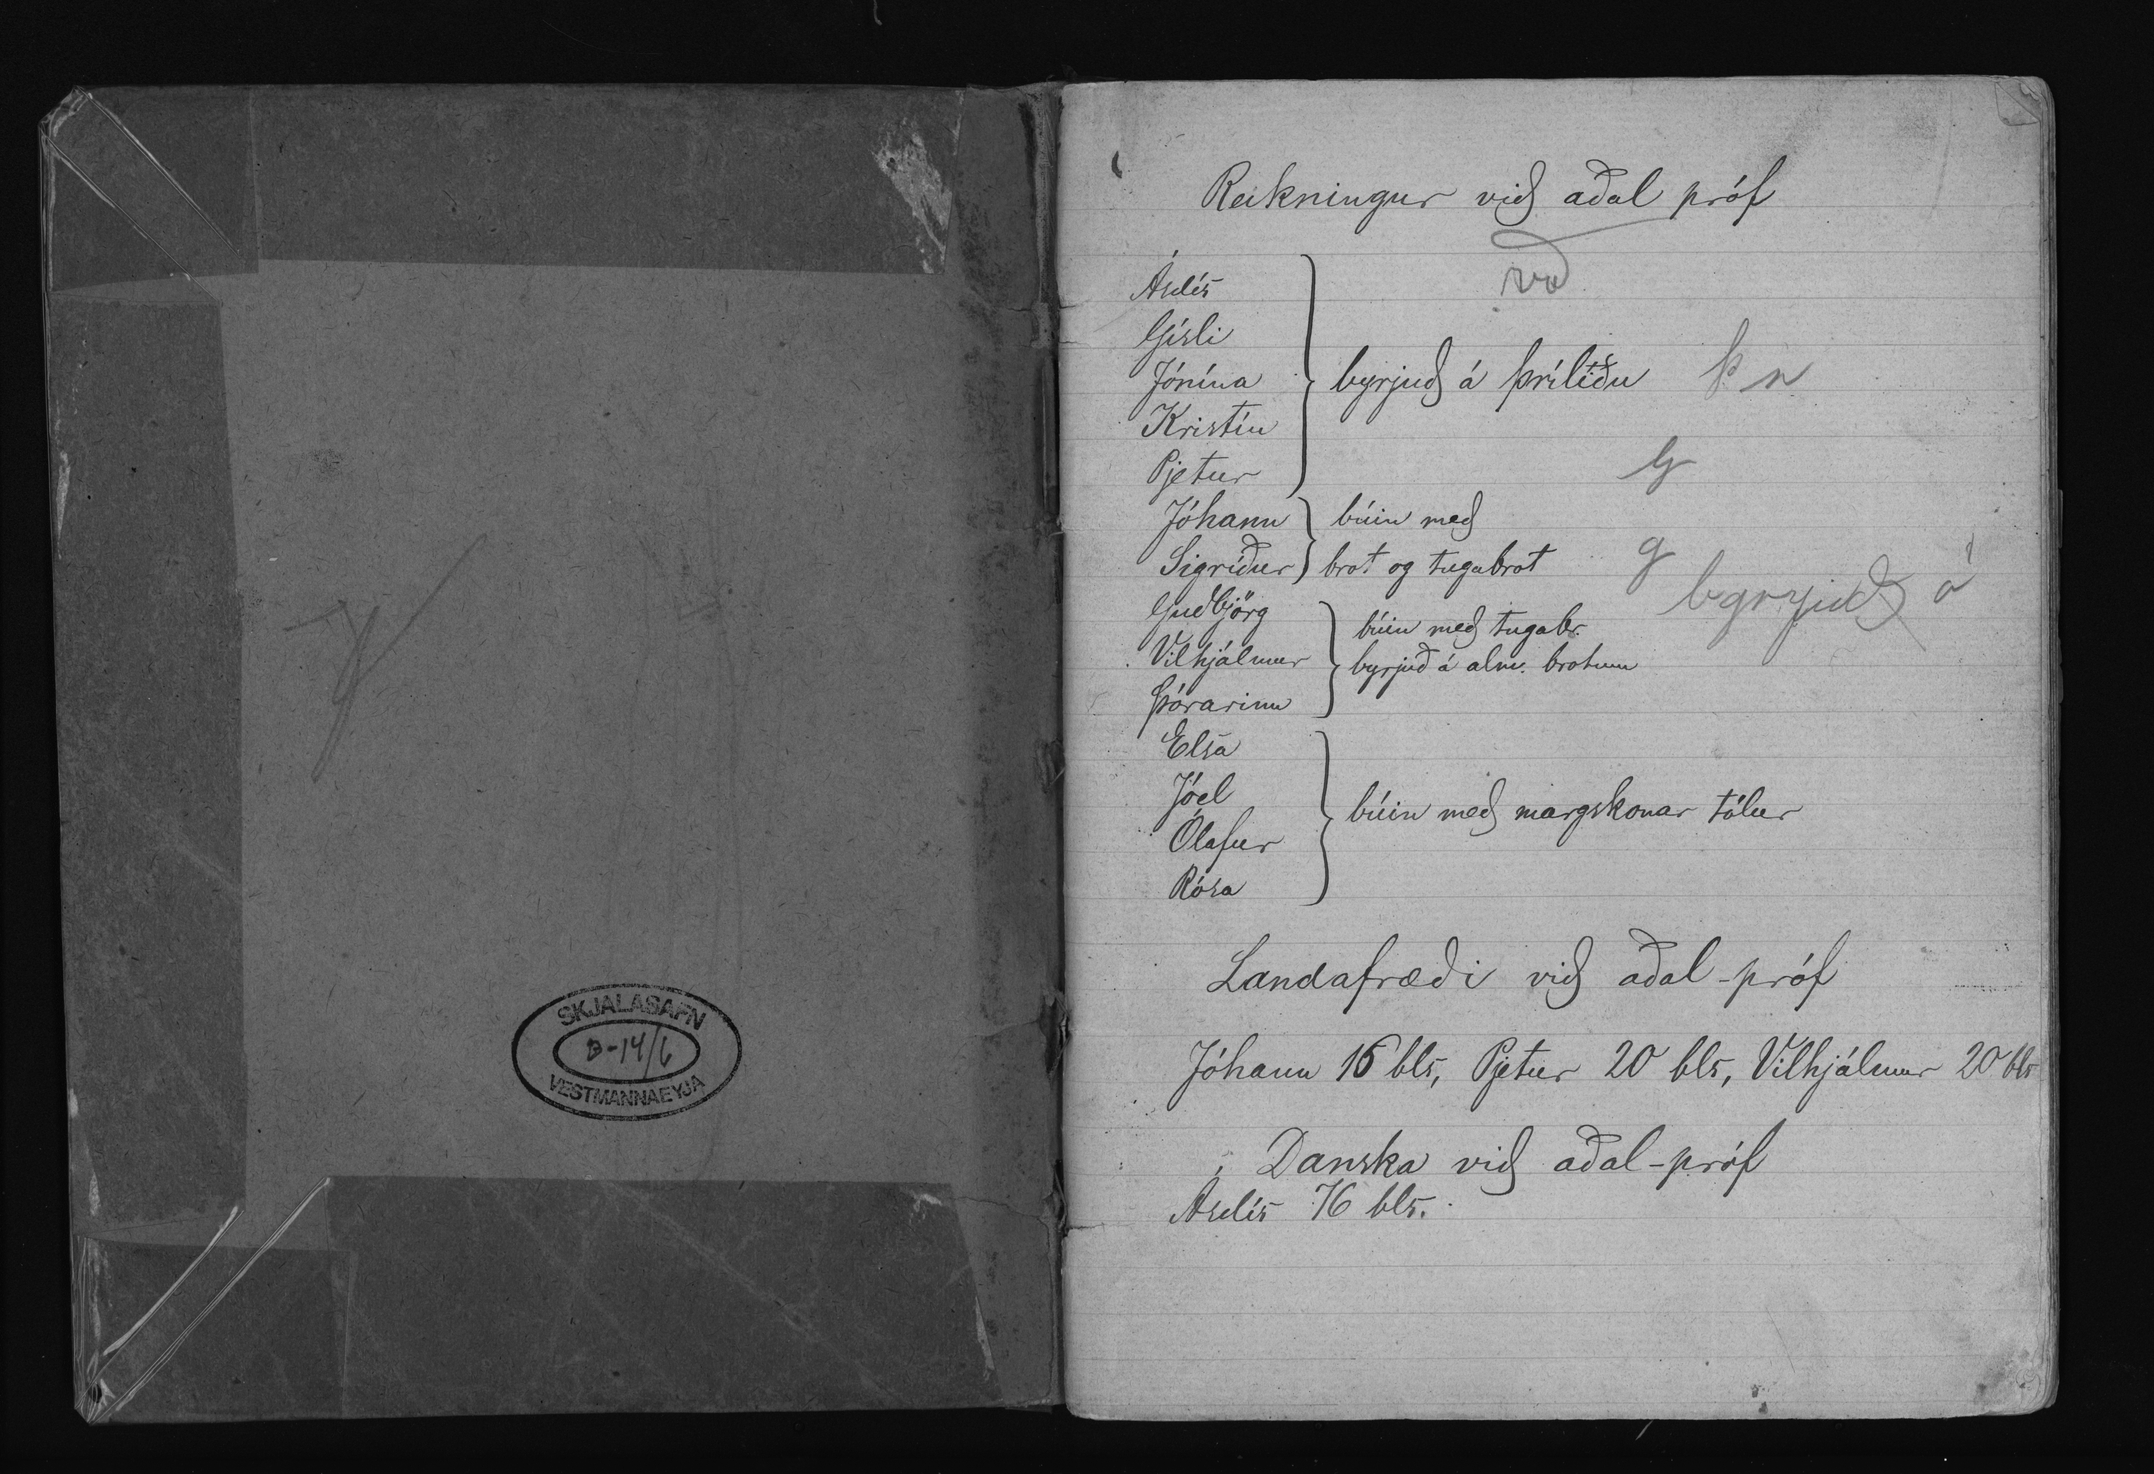 SKJALASAFN
B-14/6
VESTMANNAEYJA
Reikningur við aðal próf
við
Ásdís
Gísli
Jónína
Kristín
Pjetur
byrjuð á þríliðu
Þ n
G
Jóhann
Sigríður
búin með
brot og tugabrot
g
byrjuð á
Guðbjörg
Vilhjálmur
Þórarinn
búin með tugabr.
byrjuð á alm. brotum
Elsa
Jóel
Ólafur
Rósa
búin með margskonar tölur
Landafræði við aðal-próf
Jóhann 15 bls, Pjetur 20 bls, Vilhjálmur 20 bls
Danska við aðal-próf
Ásdís 76 bls.